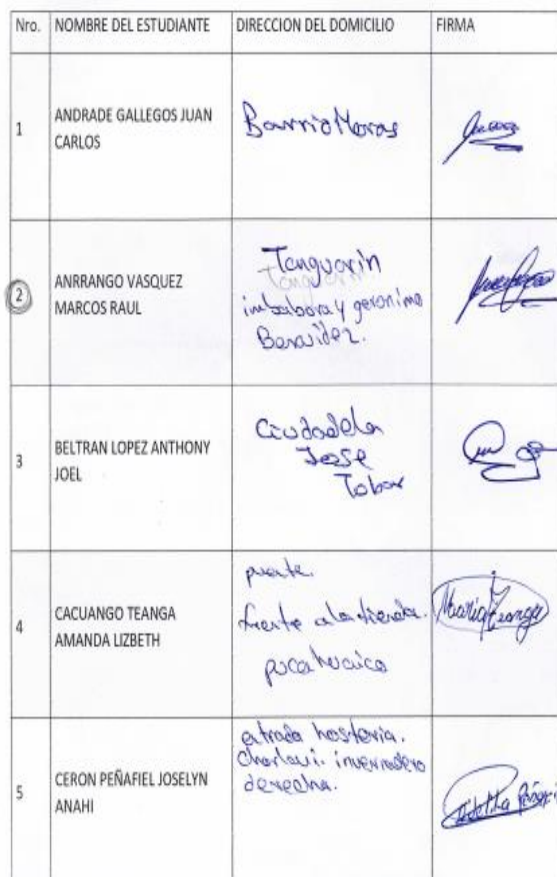 Nro. NOMBRE DEL ESTUDIANTE DIRECCION DEL DOMICILIO FIRMA
1 ANDRADE GALLEGOS JUAN
CARLOS
Barrio Moras
2 ANRRANGO VASQUEZ
MARCOS RAUL
Tanguarin
Tanguarin
imbabora y geronimo
Benavidez.
3 BELTRAN LOPEZ ANTHONY
JOEL
Ciudadela
Jose
Tobar
4 CACUANGO TEANGA
AMANDA LIZBETH
puente.
frente a la tienda.
pucahuaico
Maria Teanga
5 CERON PEÑAFIEL JOSELYN
ANAHI
entrada hosteria.
Chorlavi. invernadero
derecha.